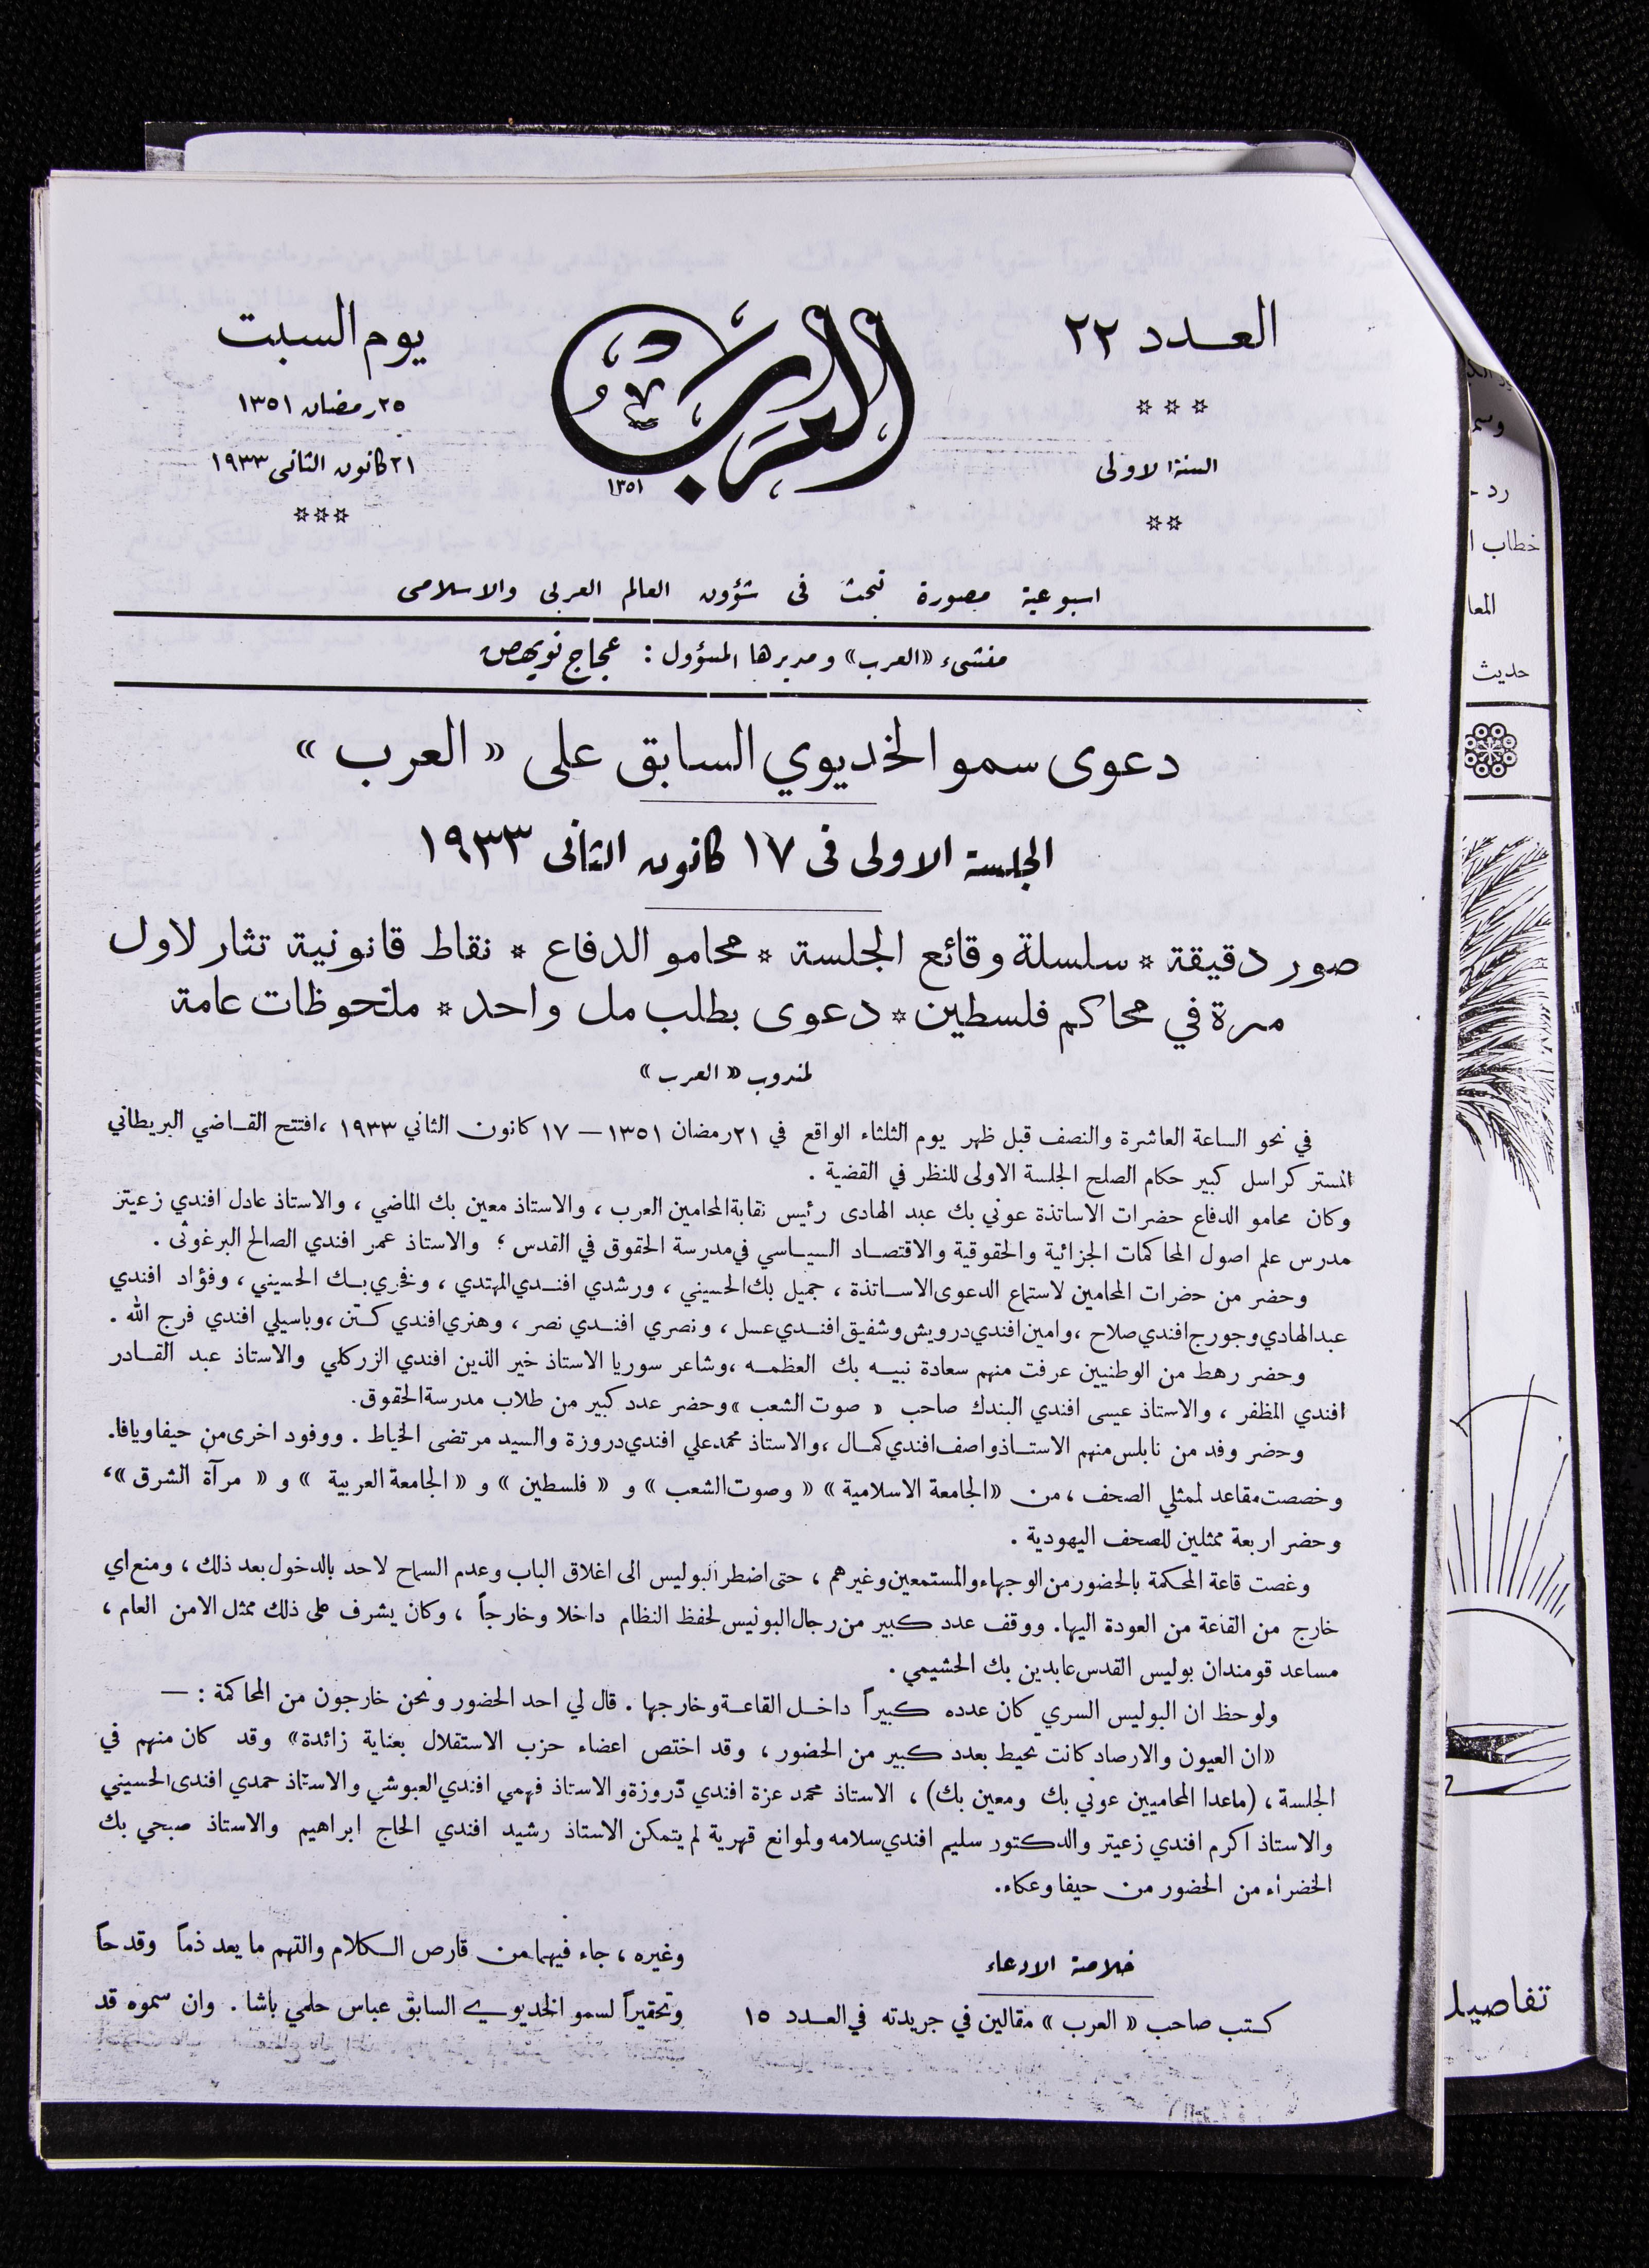 العدد ٢٢
***
السنة الاولى
**
العرب
١٣٥١
يوم السبت
٢٥ رمضان ١٣٥١
٢١ كانون الثانى ١٩٣٣
***
اسبوعية مصورة تبحث فى شؤون العالم العربى والاسلامى
منشىء «العرب» ومديرها المسؤول : عجاج نويهض
دعوى سمو الخديوي السابق على « العرب »
الجلسة الاولى فى ١٧ كانون الثانى ١٩٣٣
صور دقيقة * سلسلة وقائع الجلسة * محامو الدفاع * نقاط قانونية تثار لاول
مرة في محاكم فلسطين * دعوى بطلب مل واحد * ملحوظات عامة
لمندوب « العرب »
في نحو الساعة العاشرة والنصف قبل ظهر يوم الثلثاء الواقع في ٢١ رمضان ١٣٥١ — ١٧ كانون الثاني ١٩٣٣ ، افتتح القاضي البريطاني
المستر كراسل كبير حكام الصلح الجلسة الاولى للنظر في القضية .
وكان محامو الدفاع حضرات الاساتذة عوني بك عبد الهادى رئيس نقابة المحامين العرب ، والاستاذ معين بك الماضي ، والاستاذ عادل افندي زعيتر
مدرس علم اصول المحاكمات الجزائية والحقوقية والاقتصاد السياسي في مدرسة الحقوق في القدس ؛ والاستاذ عمر افندي الصالح البرغوثى .
وحضر من حضرات المحامين لاستماع الدعوى الاساتذة ، جميل بك الحسيني ، ورشدي افندي المهتدي ، وفخري بك الحسيني ، وفؤاد افندي
عبد الهادي وجورج افندي صلاح ، وامين افندي درويش وشفيق افندي عسل ، ونصري افندي نصر ، وهنري افندي كتن ، وباسيلي افندي فرج الله .
وحضر رهط من الوطنيين عرفت منهم سعادة نبيه بك العظمه ، وشاعر سوريا الاستاذ خير الدين افندي الزركلي والاستاذ عبد القادر
افندي المظفر ، والاستاذ عيسى افندي البندك صاحب « صوت الشعب » وحضر عدد كبير من طلاب مدرسة الحقوق .
وحضر وفد من نابلس منهم الاستاذ واصف افندي كمال ، والاستاذ محمد علي افندي دروزة والسيد مرتضى الخياط . ووفود اخرى من حيفا ويافا .
وخصصت مقاعد لممثلي الصحف ، من «الجامعة الاسلامية » « وصوت الشعب » و « فلسطين » و « الجامعة العربية » و « مرآة الشرق » ،
وحضر اربعة ممثلين للصحف اليهودية .
وغصت قاعة المحكمة بالحضور من الوجهاء والمستمعين وغيرهم ، حتى اضطر البوليس الى اغلاق الباب وعدم السماح لاحد بالدخول بعد ذلك ، ومنع اي
خارج من القاعة من العودة اليها . ووقف عدد كبير من رجال البوليس لحفظ النظام داخلا وخارجاً ، وكان يشرف على ذلك ممثل الامن العام ،
مساعد قومندان بوليس القدس عابدين بك الحشيمي .
ولوحظ ان البوليس السري كان عدده كبيراً داخل القاعة وخارجها . قال لي احد الحضور ونحن خارجون من المحاكمة : —
«ان العيون والارصاد كانت تحيط بعدد كبير من الحضور ، وقد اختص اعضاء حزب الاستقلال بعناية زائدة» وقد كان منهم في
الجلسة ، (ماعدا المحاميين عوني بك ومعين بك) ، الاستاذ محمد عزة افندي دروزة والاستاذ فهمي افندي العبوشي والاستاذ حمدي افندى الحسيني
والاستاذ اكرم افندي زعيتر والدكتور سليم افندي سلامه ولموانع قهرية لم يتمكن الاستاذ رشيد افندي الحاج ابراهيم والاستاذ صبحي بك
الخضراء من الحضور من حيفا وعكاء .
خلاصة الادعاء
كتب صاحب « العرب » مقالين في جريدته في العدد ١٥
وغيره ، جاء فيهما من قارص الكلام والتهم ما يعد ذماً وقدحاً
وتحقيراً لسمو الخديوي السابق عباس حلمي باشا . وان سموه قد
رد -
خطاب ا
المعا
حديث
تفاصيل